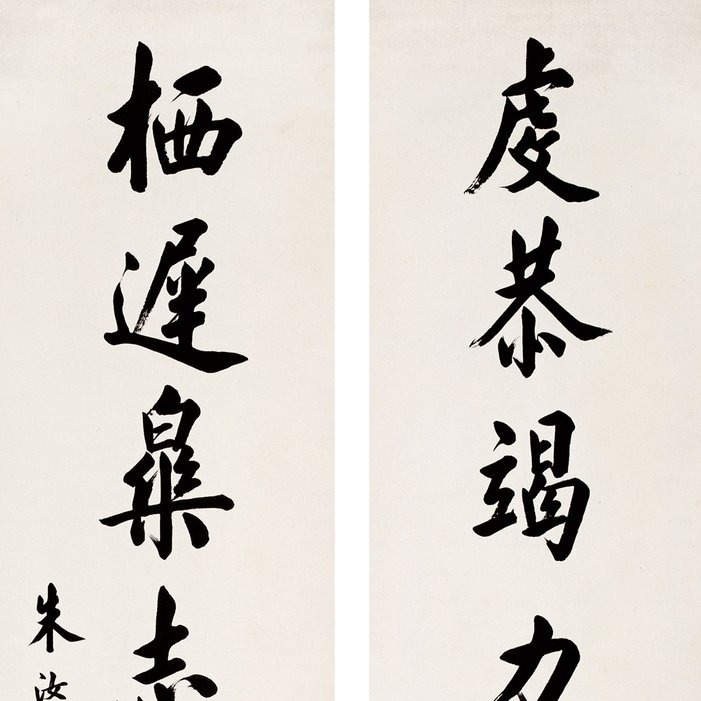 虔恭竭力
栖遲樂志
朱汝